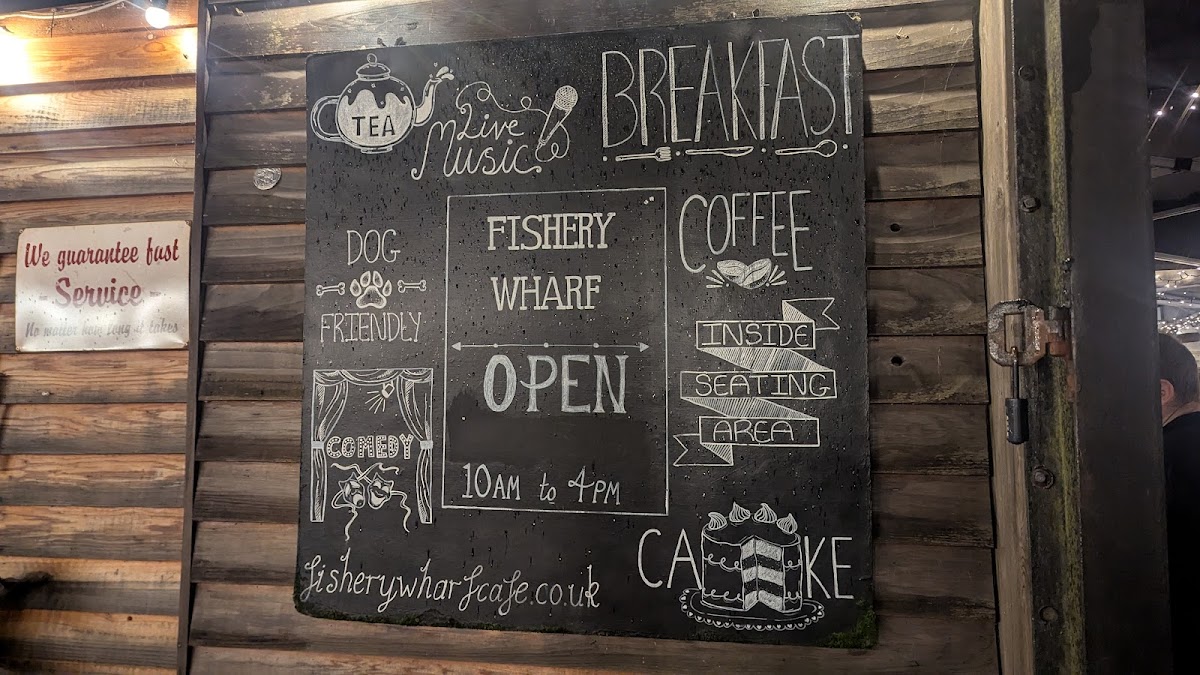 TEA
Live
Music
BREAKFAST
We guarantee fast
Service
No matter how long it takes
DOG
FRIENDLY
FISHERY
WHARF
OPEN
10AM to 4PM
COFFEE
INSIDE
SEATING
AREA
COMEDY
fisherywharfcafe.co.uk
CAKE